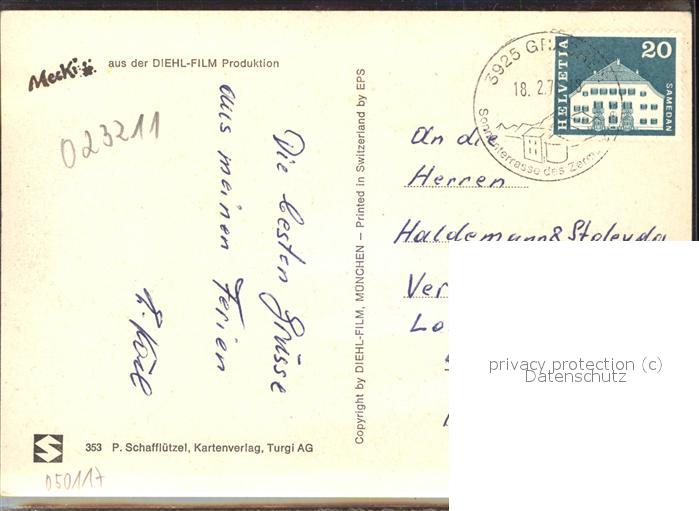 Mecki aus der DIEHL-FILM Produktion
023211
Die besten Grüsse
aus meinen Ferien
Copyright by DIEHL-FILM, MÜNCHEN – Printed in Switzerland by EPS
3925 GR
18. 2. 7
Sonnenterrasse des Zerm
HELVETIA
20
SAMEDAN
An die
Herren
Haldemann &
Ver
Lo
privacy protection (c)
Datenschutz
353 P. Schafflützel, Kartenverlag, Turgi AG
050117